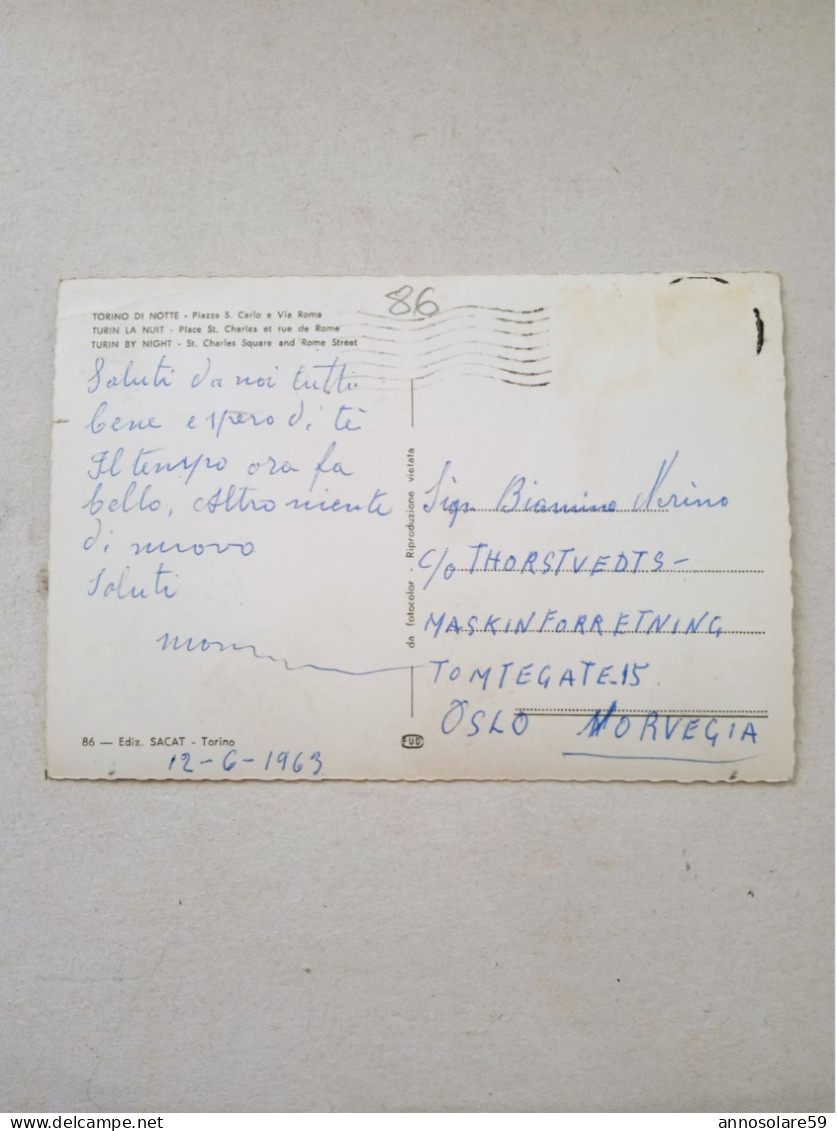 86
TORINO DI NOTTE - Piazza S. Carlo e Via Roma
TURIN LA NUIT - Place St. Charles et rue de Rome
TURIN BY NIGHT - St. Charles Square and Rome Street
Saluti da noi tutto
bene e spero di te
Il tempo ora fa
bello, Altro niente
di nuovo
Saluti
da fotocolor - Riproduzione vietata
Sign Biamino Nerino
c/o THORSTVEDTS-
MASKINFORRETNING
TOMTEGATE-15
OSLO NORVEGIA
86 — Ediz. SACAT - Torino
FUD
12-6-1963
annosolare59